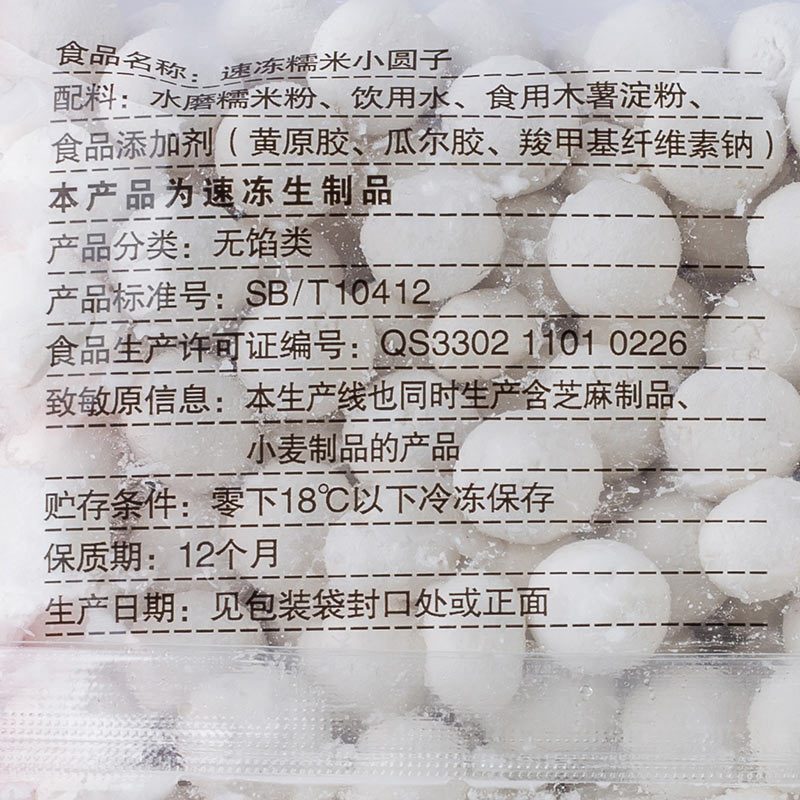 食品名称：速冻糯米小圆子
配料：水磨糯米粉、饮用水、食用木薯淀粉、
食品添加剂（黄原胶、瓜尔胶、羧甲基纤维素钠）
本产品为速冻生制品
产品分类：无馅类
产品标准号：SB/T10412
食品生产许可证编号：QS3302 1101 0226
致敏原信息：本生产线也同时生产含芝麻制品、
小麦制品的产品
贮存条件：零下18℃以下冷冻保存
保质期：12个月
生产日期：见包装袋封口处或正面